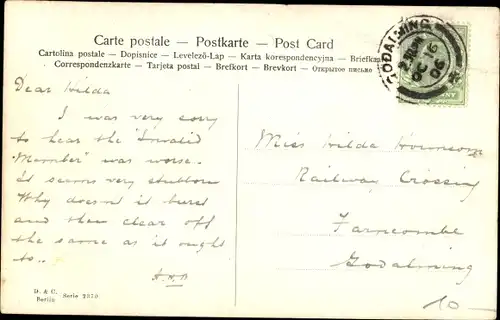 Carte postale – Postkarte – Post Card
Cartolina postale – Dopisnice – Levelező-Lap – Karta korespondencyjna – Briefkaa
Correspondenzkarte – Tarjeta postal – Brefkort – Brevkort – Открытое письмо
GODALMING
OC 16
06
Dear Hilda
I was very sorry
to hear the "Invalid
Member" was worse.
It seems very stubborn
Why doesn it burst
and then clear off
the same as it ought
to..
Miss Hilda
Railway Crossing
Farncombe
Godalming
D. & C.
Berlin Serie 2370
10